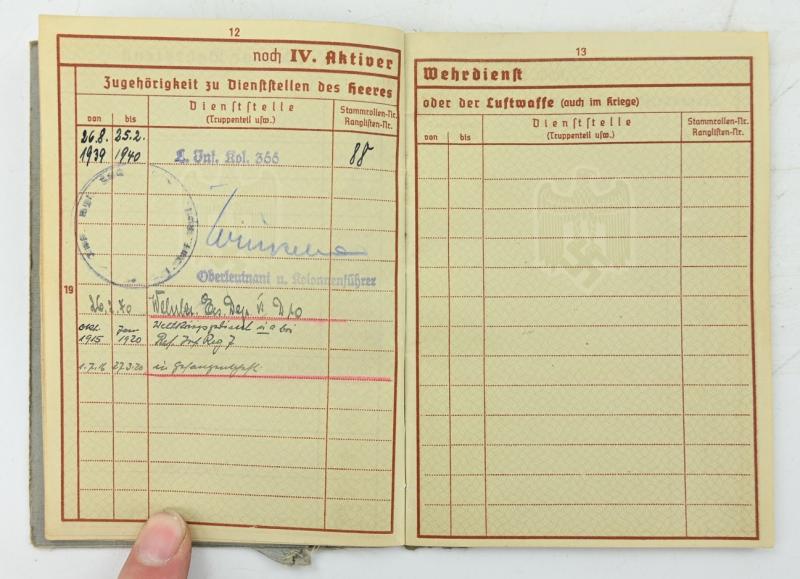 12
noch IV. Aktiver
Zugehörigkeit zu Dienststellen des Heeres
von bis
Dienststelle
(Truppenteil usw.)
Stammrollen-Nr.
Ranglisten-Nr.
26.8. 25.2.
1939 1940
L. Inf. Kol. 366
88
Oberleutnant u. Kolonnenführer
19
Okt. Jan.
1915 1920
Res. Inf. Reg. 7
1.7.16 27.3.20
in Gefangenschaft
13
Wehrdienst
oder der Luftwaffe (auch im Kriege)
von bis
Dienststelle
(Truppenteil usw.)
Stammrollen-Nr.
Ranglisten-Nr.